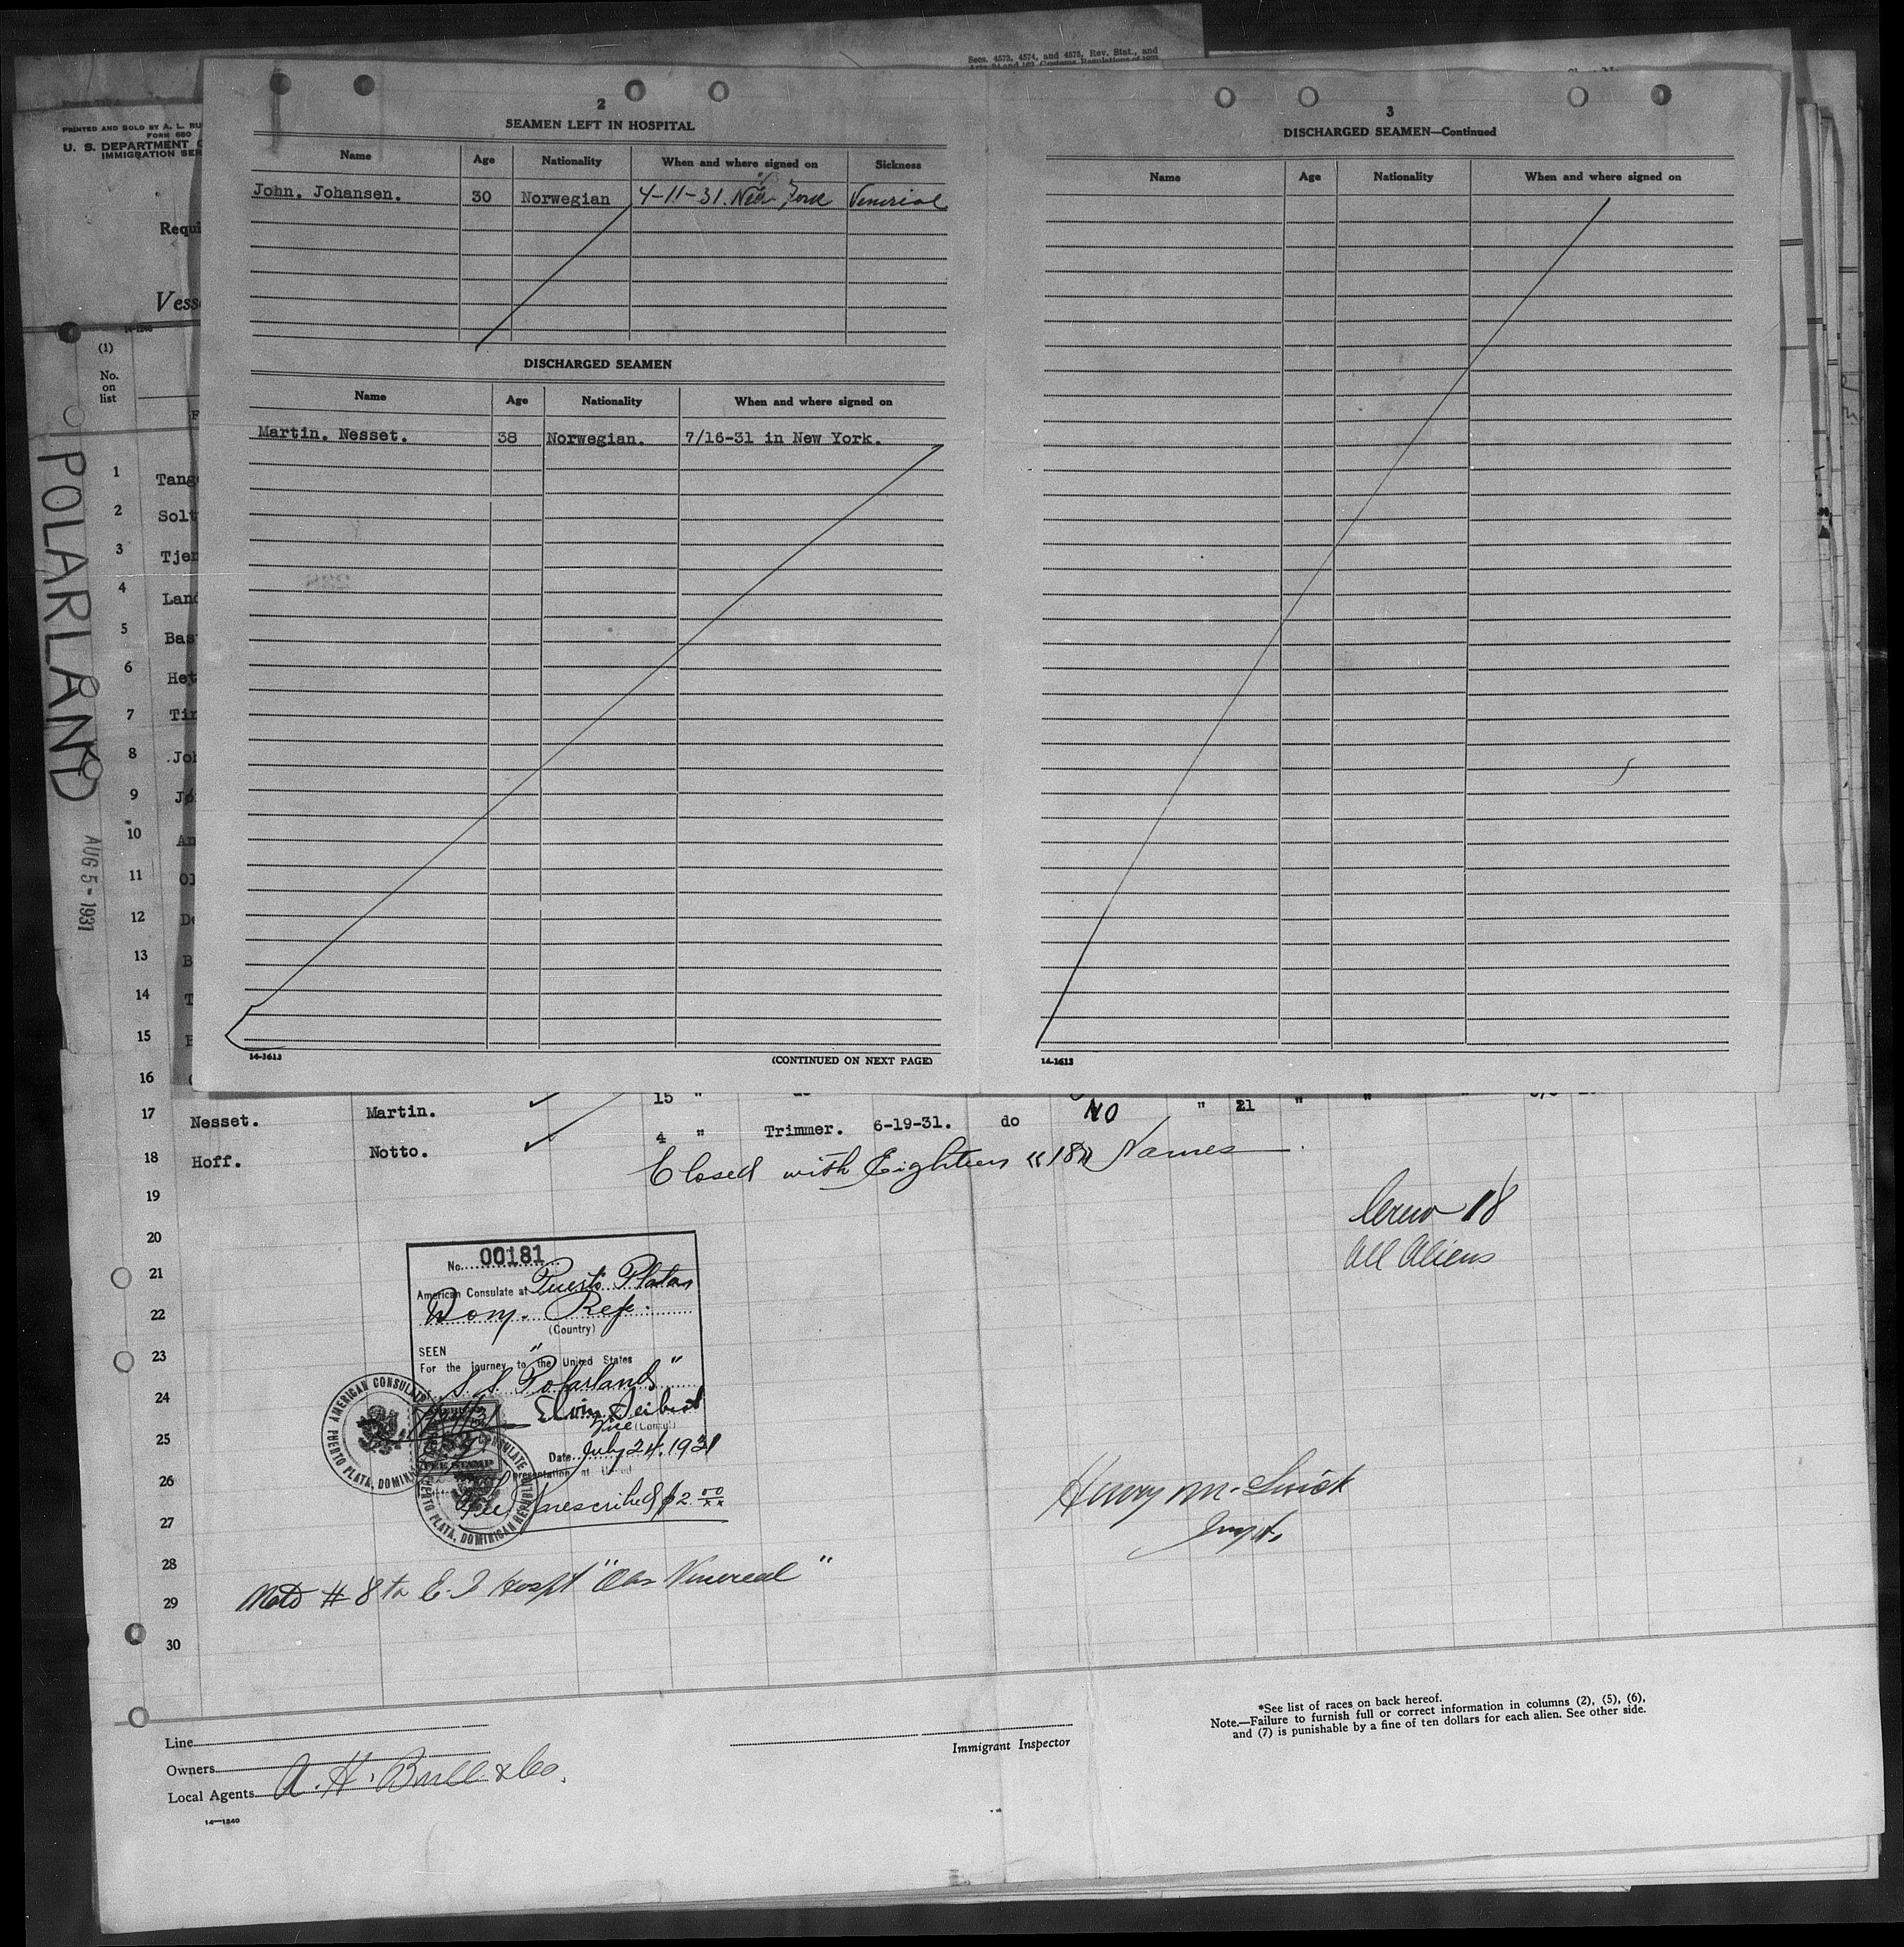 Secs. 4573, 4574, and 4575, Rev. Stat., and
PRINTED AND SOLD BY A. L. RU
FORM 680
U. S. DEPARTMENT
IMMIGRATION SER
Requi
Vess
(1)
No.
on
list
POLARLAND
AUG 5 - 1931
2
SEAMEN LEFT IN HOSPITAL
Name Age Nationality When and where signed on Sickness
John. Johansen. 30 Norwegian 4-11-31. New York Venerial
DISCHARGED SEAMEN
Name Age Nationality When and where signed on
Martin. Nesset. 38 Norwegian. 7/16-31 in New York.
14-1613 (CONTINUED ON NEXT PAGE)
3
DISCHARGED SEAMEN—Continued
Name Age Nationality When and where signed on
14-1613
1 Tang
2 Solt
3 Tjer
4 Land
5 Bas
6 Het
7 Tir
8 Joh
9 Jø
10 An
11 Ol
12 De
13 B
14 T
15
16
17 Nesset. Martin. 15 " NO " 21 " " "
18 Hoff. Notto. 4 " Trimmer. 6-19-31. do
Closed with Eighteen "18" Names
19
20
21
22
23
24
25
26
27
28
29
30
Crew 18
All Aliens
No. 00181
American Consulate at Puerto Plata
Dom. Rep.
(Country)
SEEN
For the journey to the United States
"S S Polarland"
Elvin Seibert
Vice (Consul)
Date July 24, 1931
Fee prescribed $2.00
AMERICAN CONSULATE
PUERTO PLATA, DOMINICAN REPUBLIC
FEE STAMP
Henry M.
Insp.
# 8 to E. I Hospt "Venereal"
Line
Owners
Local Agents A. H. Bull & Co.
14—1240
Immigrant Inspector
*See list of races on back hereof.
Note.—Failure to furnish full or correct information in columns (2), (5), (6),
and (7) is punishable by a fine of ten dollars for each alien. See other side.